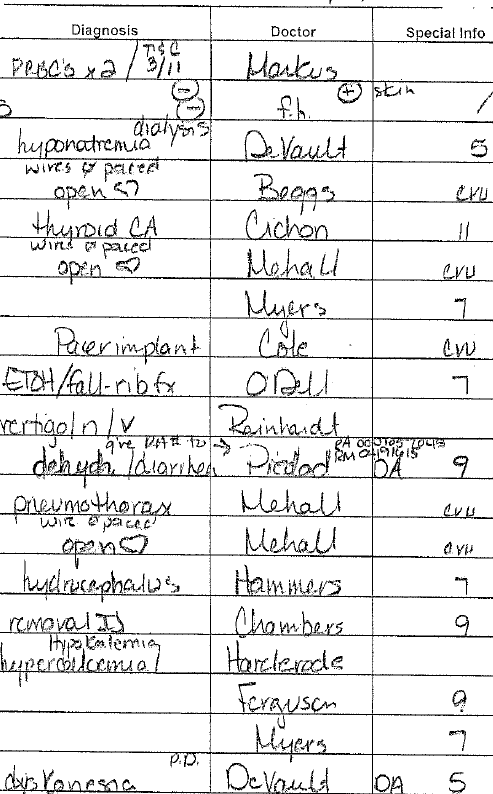 Diagnosis Doctor Special Info
PRBC's x2 / T&C 3/11 Markus
f.h. + skin
dialysis
hyponatremia DeVault 5
wires paced
open Beggs cvu
thyroid CA Cichon 11
wires paced
open Mehall cvu
Myers 7
Pacer implant Cole cvu
ETOH/fall-rib fx O'Dell 7
vertigo/n/v Reinhardt
give to →
dehydr. /diarrhea Piedad OA 9
pneumothorax Mehall cvu
wire paced
open Mehall cvu
hydrocephalus Hammers 7
removal Chambers 9
Hypokalemia
hypercalcemia Harclerode
Ferguson 9
Myers 7
P.D.
DeVault OA 5